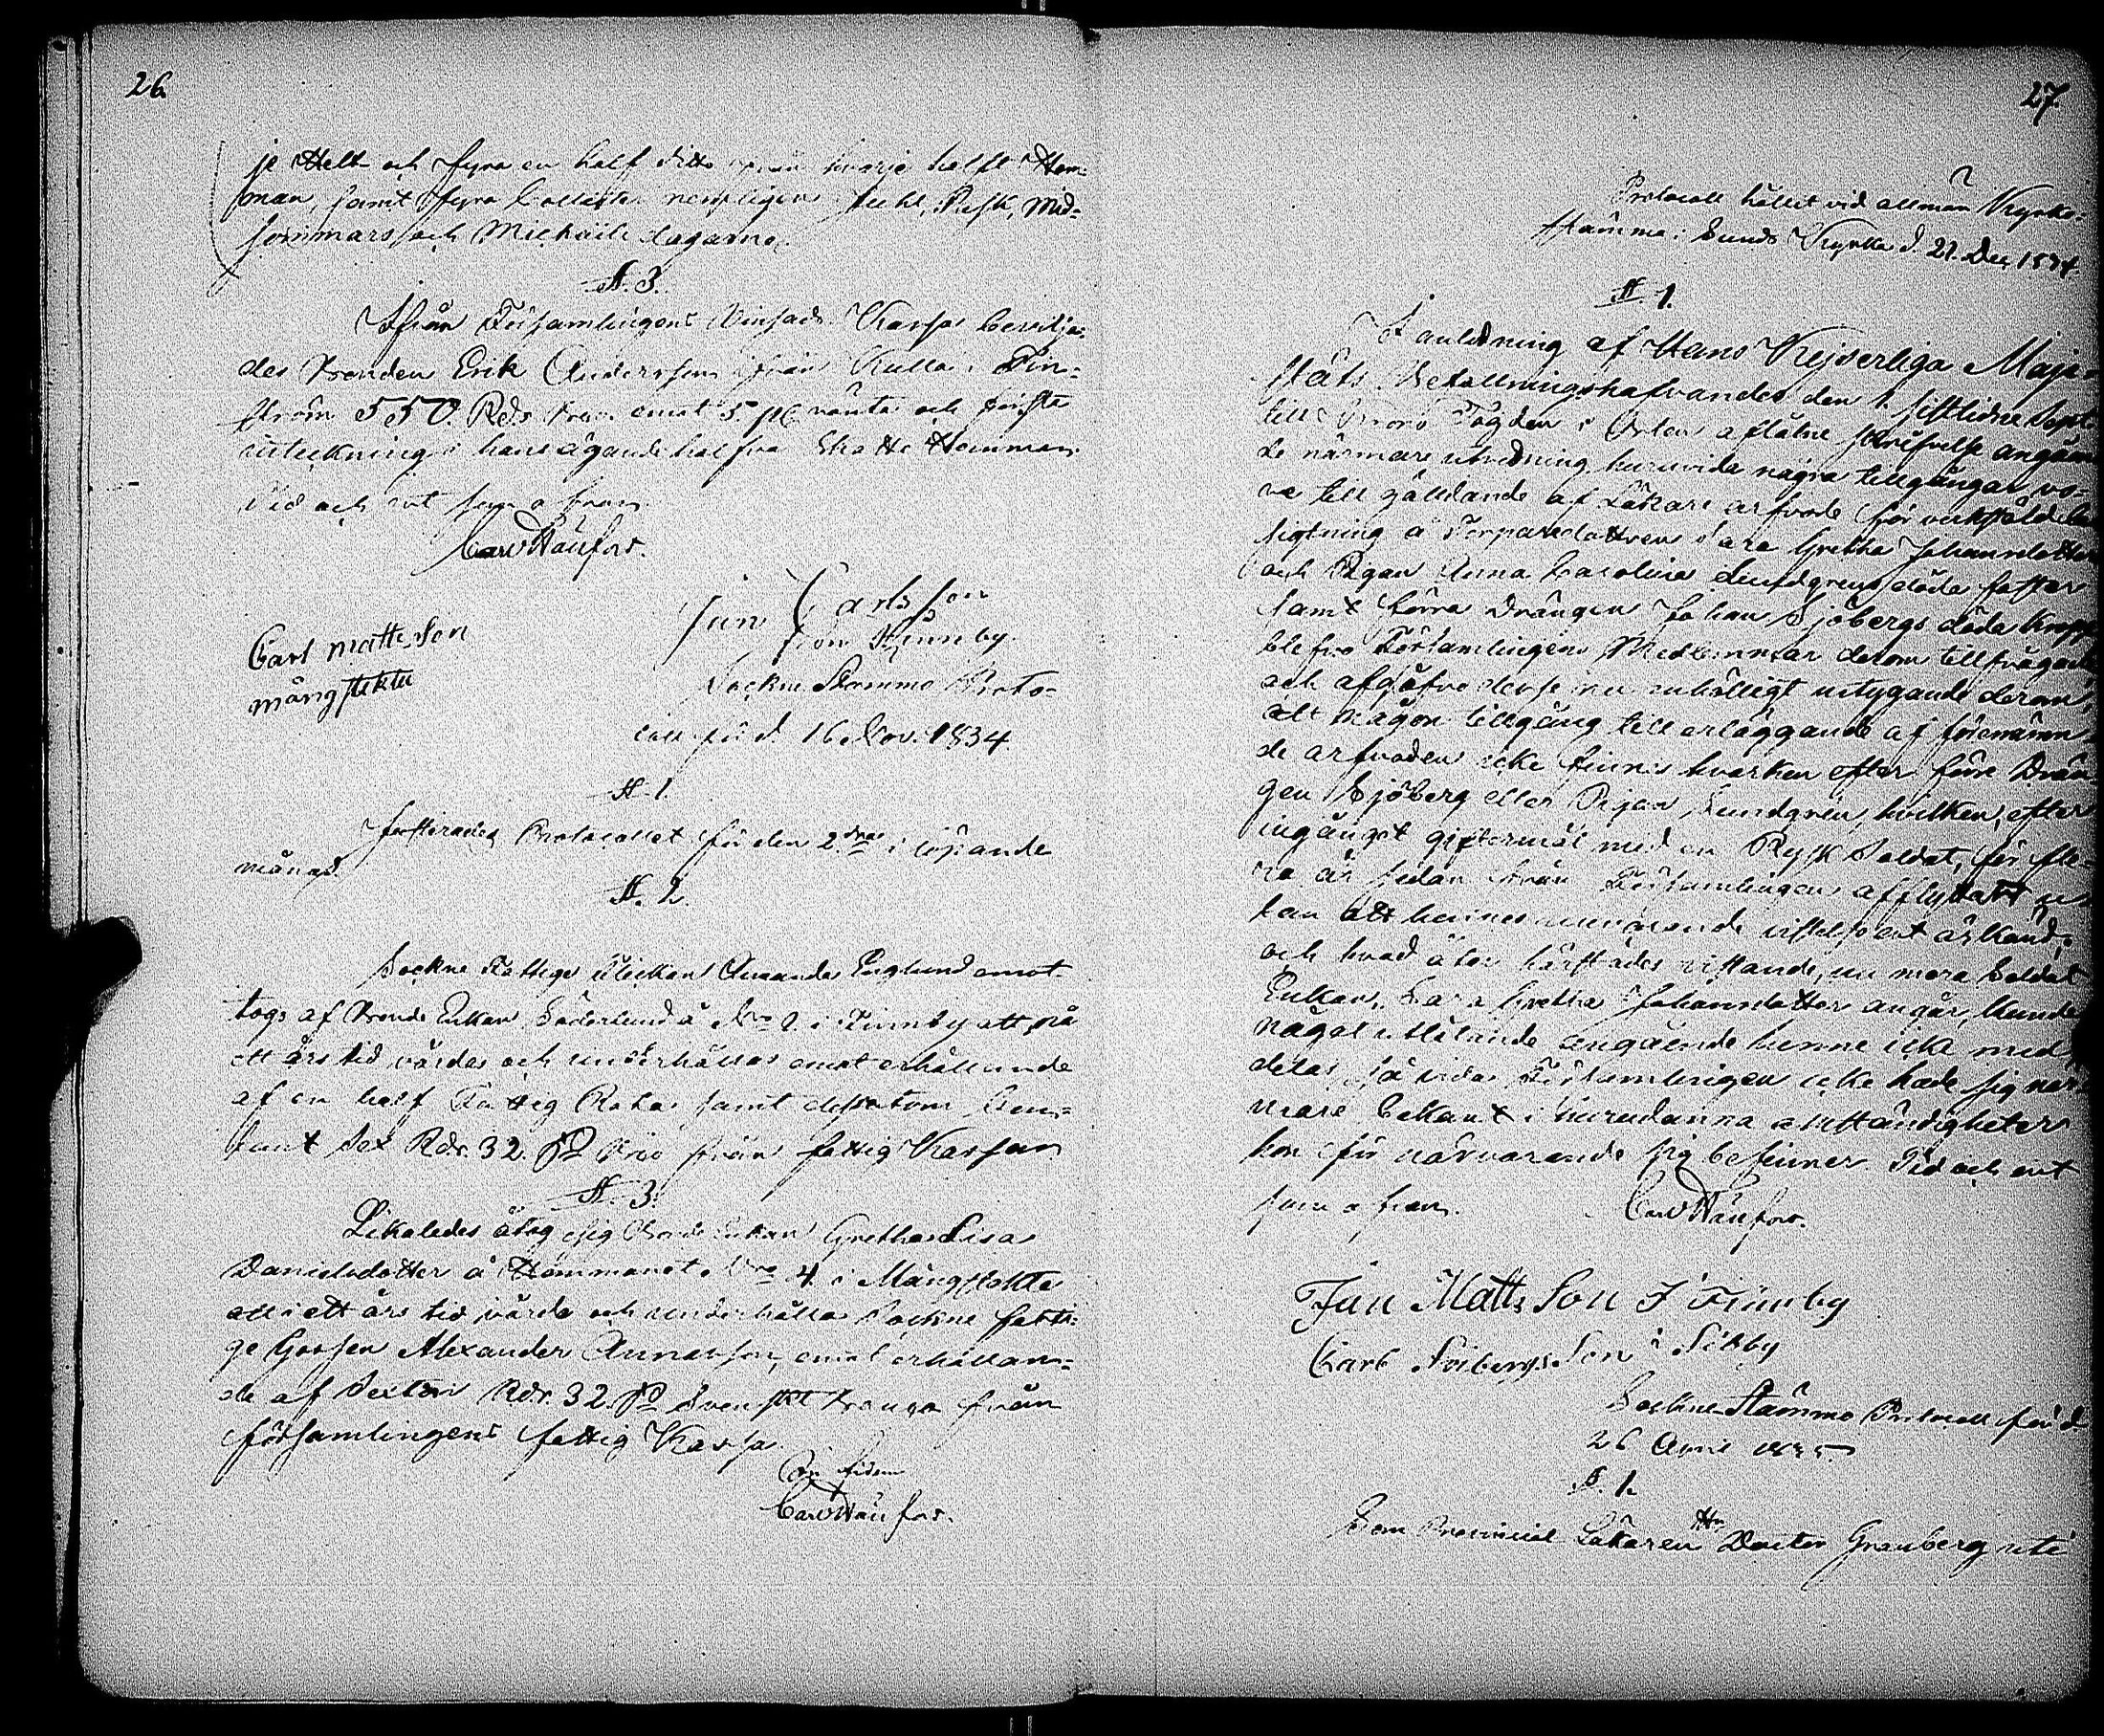 26.
je Helt och fyra en half ditto från hvarje helft Hem-
man, samt fyra Collecter nemligen Jule, Påsk, Mid-
sommars och Michaili dagarne.
§. 3.
Ifrån Församlingens Kassa bevilja-
des Bonden Erik Andersson ifrån Kulla i Fin-
ström 550. Rds Bco emot 5 pC ränta och första
inteckning i hans ägande halfva Skatte Hemman.
Tid och ort som ofvan.
Carl
Jan Carlsson
från Finnby.
Carl Matts Son
mångstekta
Sockne Stämmo Proto-
coll för d. 16 Nov. 1834.
§. 1.
Justerades Protocollet för den 2dra i löpande
månad.
§. 2.
Sockne Fattige Flickan Amanda Englund emot-
togs af Bonde Enkan Söderlund å Nro 2 i Finnby att på
ett års tid vårdas och underhållas emot erhållande
af en half Fattig Rota samt dessutom
Sex Rdr. 32. från fattig Kassan
§. 3.
Likaledes åtog sig Bonde Enkan Gretha Lisa
Danielsdotter å Hemmanet Nro 4 i Mångstekta
att i ett års tid vårda och underhålla Sockne fatti-
ge Gossen Alexander Annasson, emot erhållan-
de af Sexton Rdr. 32. Svenskt Banco från
församlingens fattig Kassa.
Carl
27.
Protocoll hållit vid allmän Kyrko-
stämma i Sunds Kyrka d. 21. Dec 1834.
§. 1.
I anledning af Hans Kejserliga Maje-
stäts Befallningshafvandes den 1. sistlidne Sept
till Krono Fogden i Orten aflåtne skrifvelse angåen-
de närmare utredning huruvida några tillgångar vo-
re till gäldande af Läkare arfvode för verkställd be-
sigtning å Torparedottren Sara Gretha Johansdotters
och Pigan Anna Carolina Lundgrens döda foster
samt förra Drängen Johan Sjöbergs döda kropp
blefvo Församlingens Medlemmar derom tillfrågade
och afgåfvo desse nu enhälligt intygande derom,
att någon tillgång till erläggande af förenämn-
de arfvoden icke finnes hvarken efter förre Drän-
gen Sjöberg eller Pigan Lundgren, hvilken, efter
ingånget giftermål med en Rysk Soldat, för fle-
ra år sedan från Församlingen afflyttat u-
tan att hennes nuvarande vistelse ort är känd;
och hvad åter härstädes vistande, nu mera Soldat
Enkan, Sara Gretha Johansdotter angår, kunde
något utlåtande angående henne icke med-
delas, så vida Församlingen icke hade sig när-
mare bekant i hurudanna omständigheter
hon för närvarande sig befinner. Tid och ort
som ofvan. Carl
Jan Matts Son I Finnby
Carl Son i Sibby
Sockne Stämmo Protocoll för d.
26 April 1835
§. 1.
Som Provincial Läkaren Hr Doctor Granberg uti